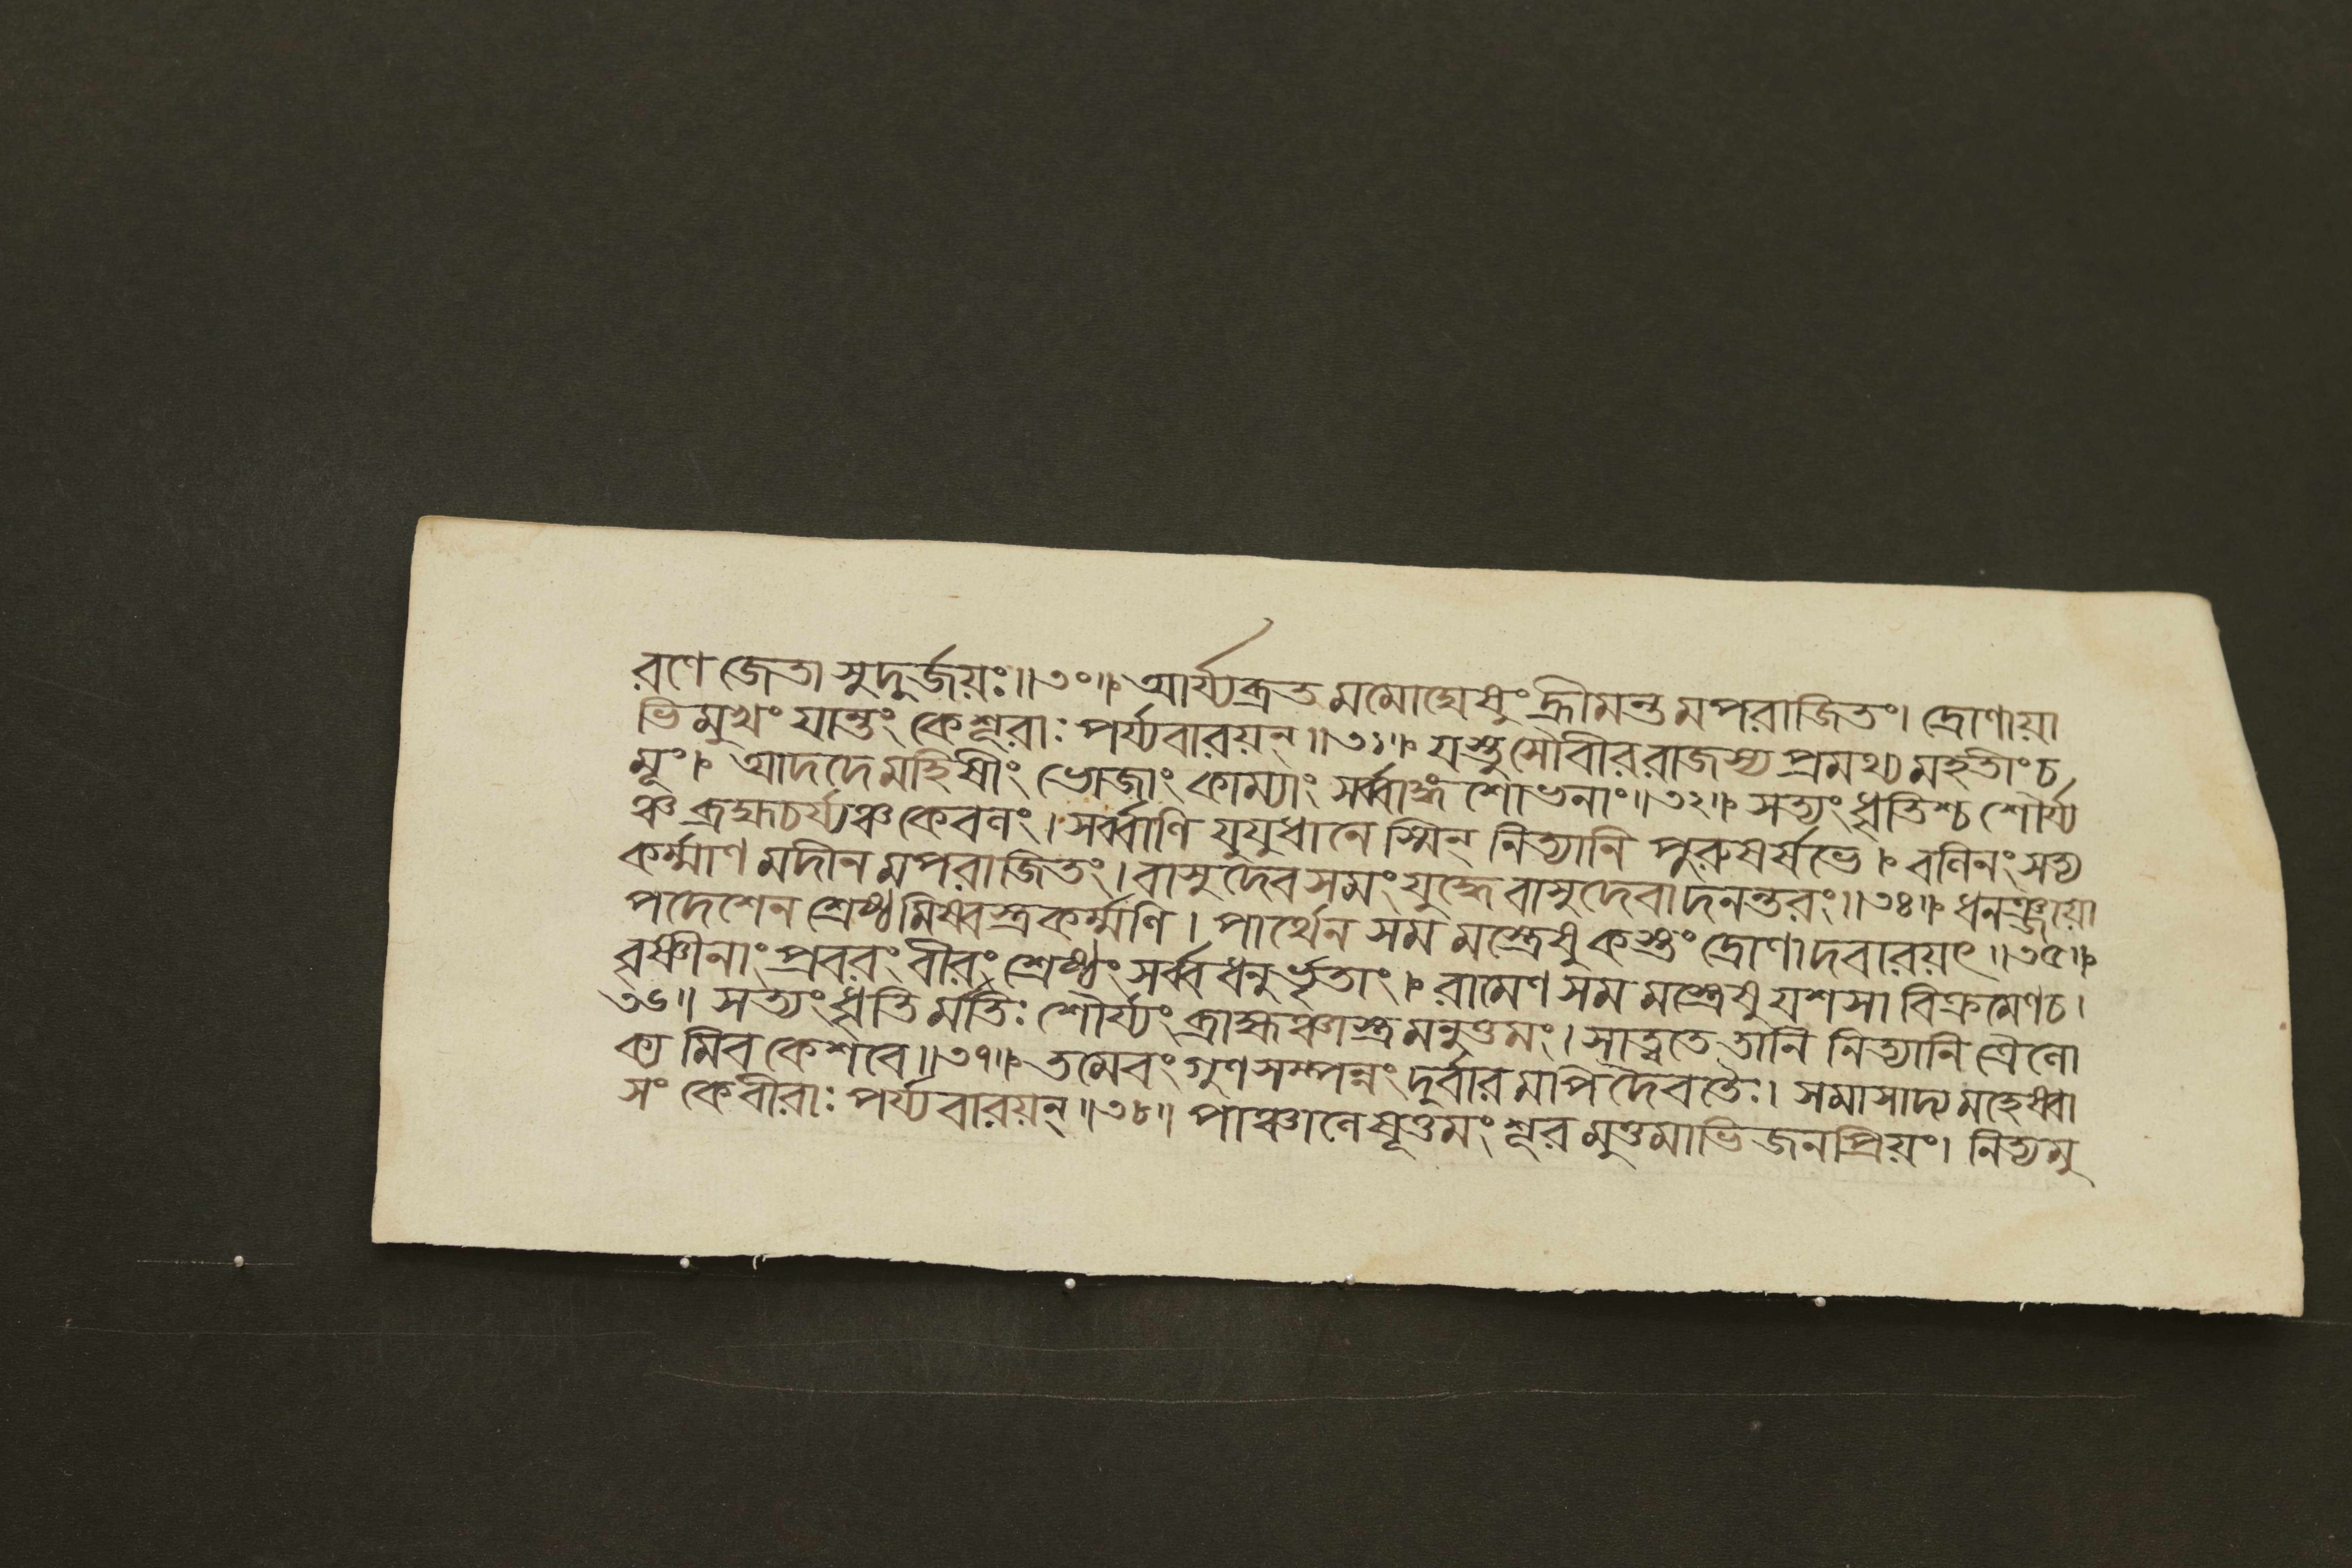 রণে জেতা সুদুর্জয়ঃ॥৩০॥ আর্য্যব্রতমমোঘেষুং হ্রীমন্তমপরাজিতং। দ্রোণায়া
ভিমুখং যান্তং কেশূরাঃ পর্য্যবারয়ন্॥৩১॥ যস্তু সৌবীররাজস্য প্রমথ্য মহতীং চ
মূং। আদদে মহিষীং ভোজাং কাম্যাং সর্ব্বাঙ্গ শোভনাং॥৩২॥ সত্যং ধৃতিশ্চ শৌর্য্য
ঞ্চ ব্রহ্মচর্য্যঞ্চ কেবলং। সর্ব্বাণি যুযুধানেস্মিন্ নিত্যানি পুরুষর্ষভে। বলিনং সত্য
কর্ম্মাণ মদীন মপরাজিতং। বাসুদেব সমং যুদ্ধে বাসুদেবাদনন্তরং॥৩৪॥ ধনঞ্জয়ো
পদেশেন শ্রেষ্ঠমিষ্বস্ত্রকর্ম্মণি। পার্থেন সম মস্ত্রেষু কস্তং দ্রোণাদবারয়ৎ॥৩৫॥
বৃষ্ণীনাং প্রবরং বীরং শ্রেষ্ঠং সর্ব্বধনুর্ভৃতাং। রামেণ সম মস্ত্রেষু যশসা বিক্রমেণ চ।
৩৬॥ সত্যং ধৃতি র্মতিঃ শৌর্য্যং ব্রাহ্মঞ্চাস্ত্র মনুত্তমং। সাত্বতে তানি নিত্যানি ত্রৈলো
ক্য মিব কেশবে॥৩৭॥ তমেবং গুণসম্পন্নং দুর্বারমপি দৈবতৈঃ। সমাসাদ্য মহেষ্বা
সং কেবীরাঃ পর্য্যবারয়ন্॥৩৮॥ পাঞ্চালেষূত্তমং শূরমুত্তমাভিজনপ্রিয়ং। নিত্যমু